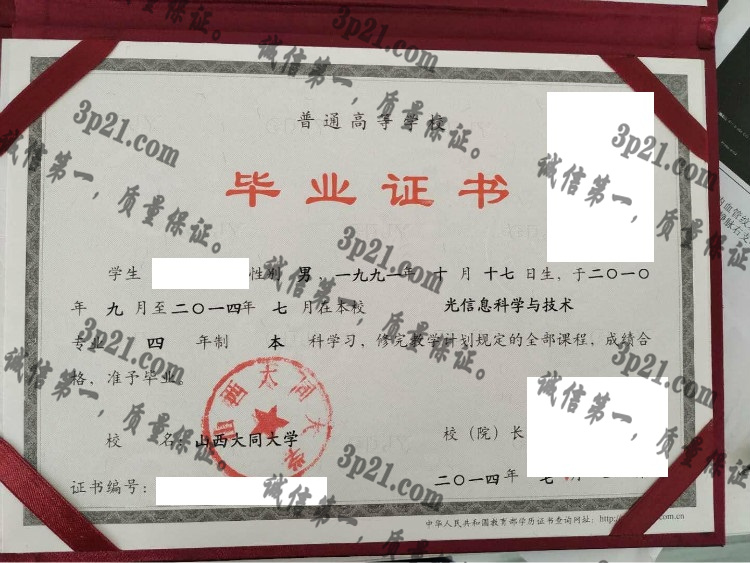 普通高等学校
毕业证书
学生 性别 男，一九九一年 十 月 十七 日生，于二〇一〇
年 九 月至二〇一四年 七 月在本校 光信息科学与技术
专业 四 年制 本 科学习，修完教学计划规定的全部课程，成绩合
格，准予毕业。
山西大同大学
校 名：山西大同大学
校（院）长
证书编号：
二〇一四年 七
中华人民共和国教育部学历证书查询网址：http:
.com.cn
3p21.com
诚信第一，质量保证。
3p21.com
诚信第一，质量保证。
3p21.com
诚信第一，质量保证。
3p21.com
诚信第一，质量保证。
3p21.com
诚信第一，质量保证。
3p21.com
诚信第一，质量保证。
3p21.com
诚信第一，质量保证。